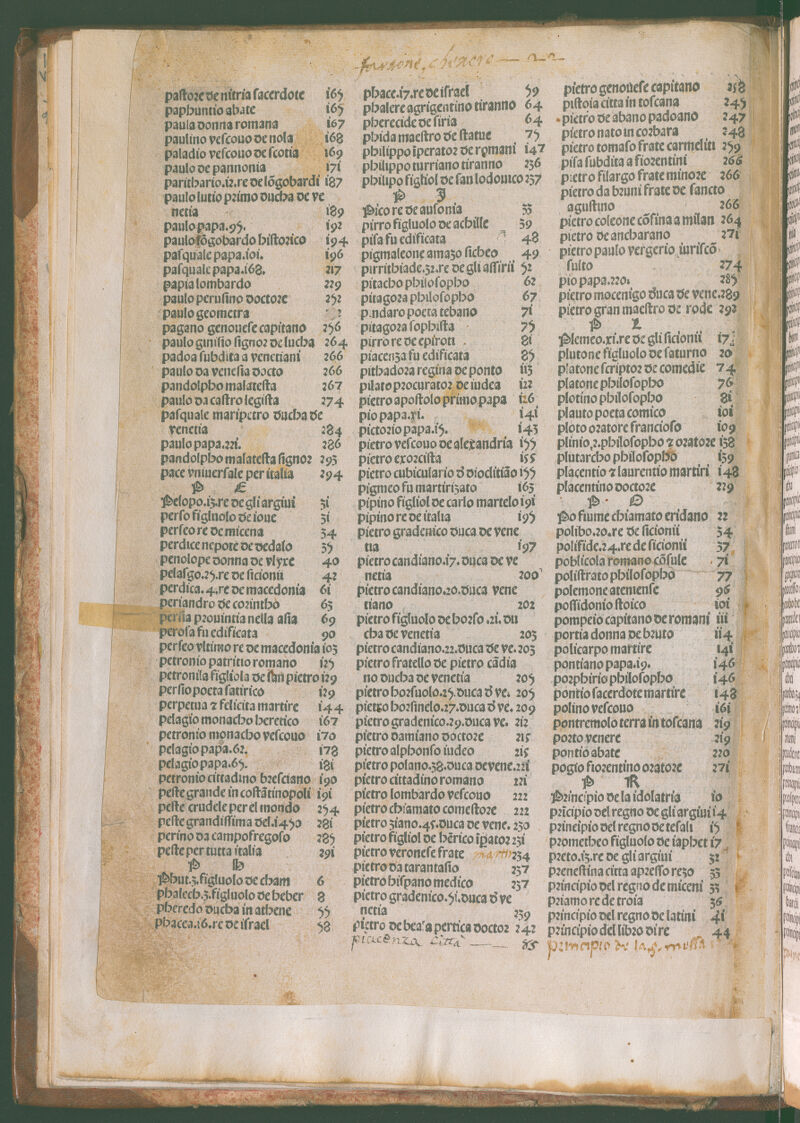 paſtore de nitria ſacerdote 165
paphuntio abate 165
paula donna romana 167
paulino veſcouo de nola 168
paladio veſcouo de ſcotia 169
paulo de pannonia 171
paritbario.12.re de lõgobardi 187
paulo lutio primo ducha de ve
netia 189
paulo papa.95. 192
paulo lõgobardo hiſtorico 194
paſquale papa.101. 196
paſquale papa.168. 217
papia lombardo 229
paulo peruſino doctore 252
paulo geometra
pagano genoueſe capitano 256
paulo giniſio ſignor de lucha 264
padoa ſubdita a venetiani 266
paulo da veneſia docto 266
pandolpho malateſta 267
paulo da caſtro legiſta 274
paſquale maripetro ducha de
venetia 284
paulo papa.22i. 286
pandolpho malateſta ſignor 293
pace vniuerſale per italia 294
P E
Pelopo.13.re de gli argiui 31
perſo figluolo de ioue 31
perſeo re de micena 34
perdice nepote de dedalo 35
penolope donna de vlyxe 40
pelaſgo.25.re de ſicionii 42
perdica.4.re de macedonia 61
periandro de corintho 63
perſia prouintia nella aſia 69
peroſa fu edificata 90
perſeo vltimo re de macedonia 103
petronio patritio romano 125
petronila figliola de ſan pietro 129
perſio poeta ſatirico 129
perpetua ⁊ felicita martire 144
pelagio monacho heretico 167
petronio monacho veſcouo 170
pelagio papa.62. 178
pelagio papa.65. 181
petronio cittadino breſciano 190
peſte grande in coſtãtinopoli 191
peſte crudele per el mondo 254
peſte grandiſſima del.1450 281
perino da campofregoſo 285
peſte per tutta italia 291
P H
Phut.3.figluolo de cham 6
phalech.3.figluolo de heber 8
pheredo ducha in athene 55
phacea.16.re de iſrael 58
phace.17.re de iſrael 59
phalere agrigentino tiranno 64
pherecide de ſiria 64
phidia maeſtro de ſtatue 75
philippo īperator de romani 147
philippo turriano tiranno 236
philipo figliol de ſan lodouico 237
P I
Pico re de auſonia 33
pirro figluolo de achille 39
piſa fu edificata 48
pigmaleone amazo ſicheo 49
pirritbiade.32.re de gli aſſirii 52
pitacho philoſopho 62
pitagora philoſopho 67
pindaro poeta tebano 71
pitagora ſophiſta 75
pirro re de epiroti 81
piacenza fu edificata 85
pithadora regina de ponto 113
pilato procurator de iudea 122
pietro apoſtolo primo papa 126
pio papa.xi. 141
pictorio papa.15. 143
pietro veſcouo de alexandria 155
pietro exorciſta 155
pietro cubiculario d̃ dioclitião 155
pigmeo fu martirizato 163
pipino figliol de carlo martelo 191
pipino re de italia 195
pietro gradenico duca de vene
tia 197
pietro candiano.17.duca de ve
netia 200
pietro candiano.20.duca vene
tiano 202
pietro figluolo de borſo .21.du
cha de venetia 203
pietro candiano.22.duca de ve.203
pietro fratello de pietro cãdia
no ducha de venetia 205
pietro borſuolo.25.duca d̃ ve. 205
pietro borſinelo.27.duca d̃ ve. 209
pietro gradenico.29.duca ve. 212
pietro damiano doctore 215
pietro alphonſo iudeo 215
pietro polano.38.duca de vene.221
pietro cittadino romano 221
pietro lombardo veſcouo 222
pietro chiamato comeſtore 222
pietro ziano.45.duca de vene. 230
pietro figliol de hērico īpator 231
pietro veroneſe frate 234
pietro da tarantaſio 237
pietro hiſpano medico 237
pietro gradenico.51.duca d̃ ve
netia 239
pietro de bea'a pertica doctor 242
piacenza città —— 85
pietro genoueſe capitano 238
piſtoia citta in toſcana 245
pietro de abano padoano 247
pietro nato in corbara 248
pietro tomaſo frate carmeliti 259
piſa ſubdita a fiorentini 266
pietro filargo frate minore 266
pietro da bruni frate de ſancto
aguſtino 266
pietro coleone cõfina a milan 264
pietro de ancharano 271
pietro paulo vergerio iuriſcõ
ſulto 274
pio papa.220. 285
pietro mocenigo duca de vene.289
pietro gran maeſtro de rode 292
P L
Plemeo.xi.re de gli ſicionii 17
plutone figluolo de ſaturno 20
platone ſcriptor de comedie 74
platone philoſopho 76
plotino philoſopho 81
plauto poeta comico 101
ploto oratore francioſo 109
plinio.2.philoſopho ⁊ oratore 138
plutarcho philoſopho 139
placentio ⁊ laurentio martiri 148
placentino doctore 229
P O
Po fiume chiamato eridano 22
polibo.20.re de ſicionii 34
polifide.24.re de ſicionii 37
poblicola romano cõſule 71
poliſtrato philoſopho 77
polemone atenienſe 96
poſſidonio ſtoico 101
pompeio capitano de romani 111
portia donna de bruto 114
policarpo martire 141
pontiano papa.19. 146
porphirio philoſopho 146
pontio ſacerdote martire 148
polino veſcouo 161
pontremolo terra in toſcana 219
porto venere 219
pontio abate 220
pogio fiorentino oratore 271
P R
Principio de la idolatria 10
prīcipio del regno de gli argiui 14
principio del regno de teſali 15
prometheo figluolo de iaphet 17
preto.15.re de gli argiui 32
preneſtina citta apreſſo rezo 33
principio del regno de miceni 33
priamo re de troia 36
principio del regno de latini 41
principio del libro di re 44
principio de la